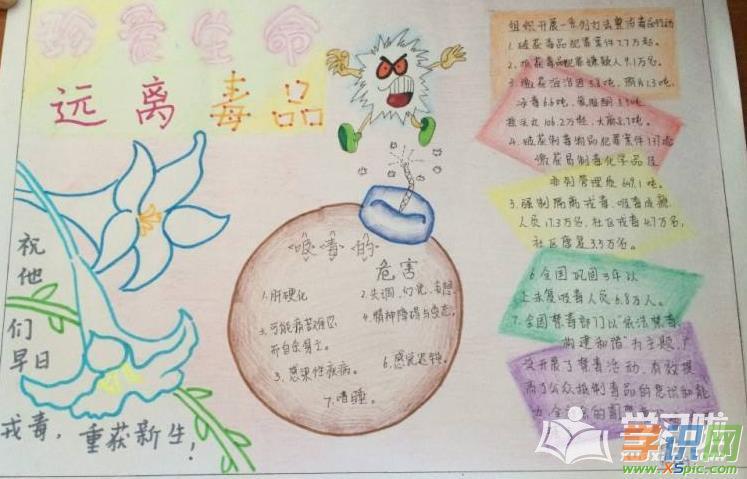 珍爱生命
远离毒品
祝他们早日
戒毒，重获新生！
吸毒的
危害
1.肝硬化
2.失调、幻觉、
4.精神障碍与变态。
3.感染性疾病。
6.感觉迟钝。
7.嗜睡。
组织开展一系列打击
1.破获毒品犯罪案件7.7万起。
2.抓获毒品犯罪嫌疑人9.1万名。
3.缴获海洛因5.8吨，鸦片1.3吨，
冰毒6.6吨，氯胺酮
106.2万粒，大麻8.7吨。
4.破获制毒物品犯罪案件
缴获易制毒化学品及
5.强制隔离戒毒、吸毒成瘾
人员17.3万名，社区戒毒4.7万名，
社区康复3.3万名。
6.全国巩固3年以
上未复吸毒人员6.8万人。
7.全国禁毒部门以“依法禁毒，
构建和谐”为主题，广
泛开展了禁毒活动，有效提
高了公众抵制毒品的意识和能
学习啦
学识网
www.xspic.com